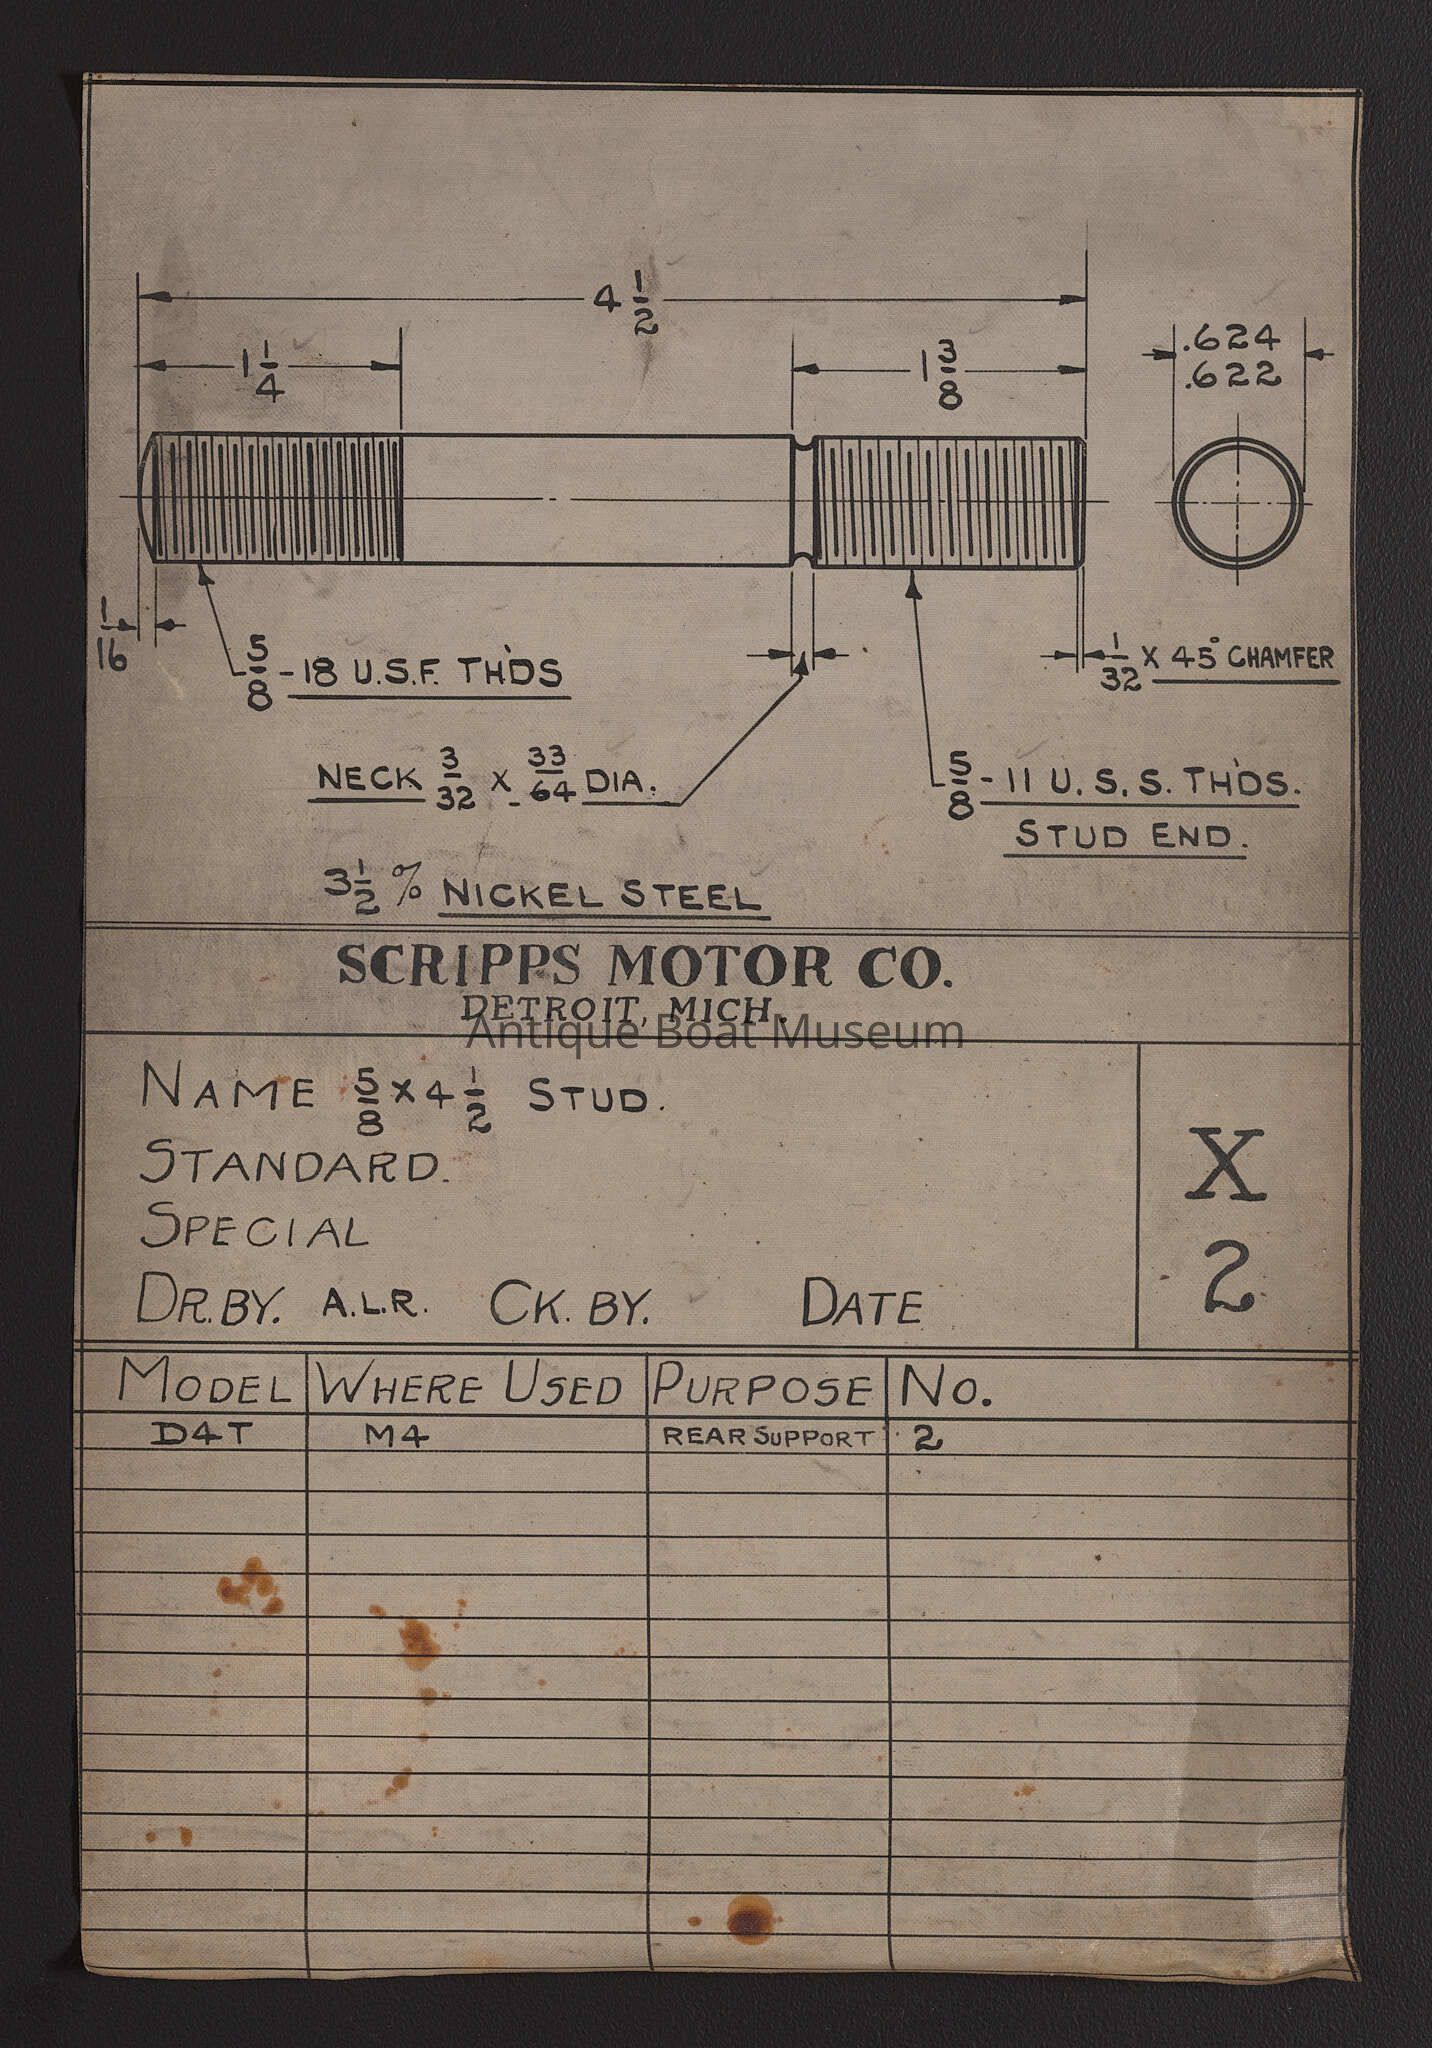 4 1/2
1 1/4
1 3/8
.624
.622
1/16
5/8 - 18 U.S.F. TH'DS
1/32 X 45° CHAMFER
NECK 3/32 X 33/64 DIA.
5/8 - 11 U.S.S. TH'DS.
STUD END.
3 1/2 % NICKEL STEEL
SCRIPPS MOTOR CO.
DETROIT, MICH.
Antique Boat Museum
NAME 5/8 X 4 1/2 STUD.
STANDARD.
SPECIAL
DR. BY. A.L.R. CK. BY. DATE
X
2
MODEL WHERE USED PURPOSE NO.
D4T M4 REAR SUPPORT 2